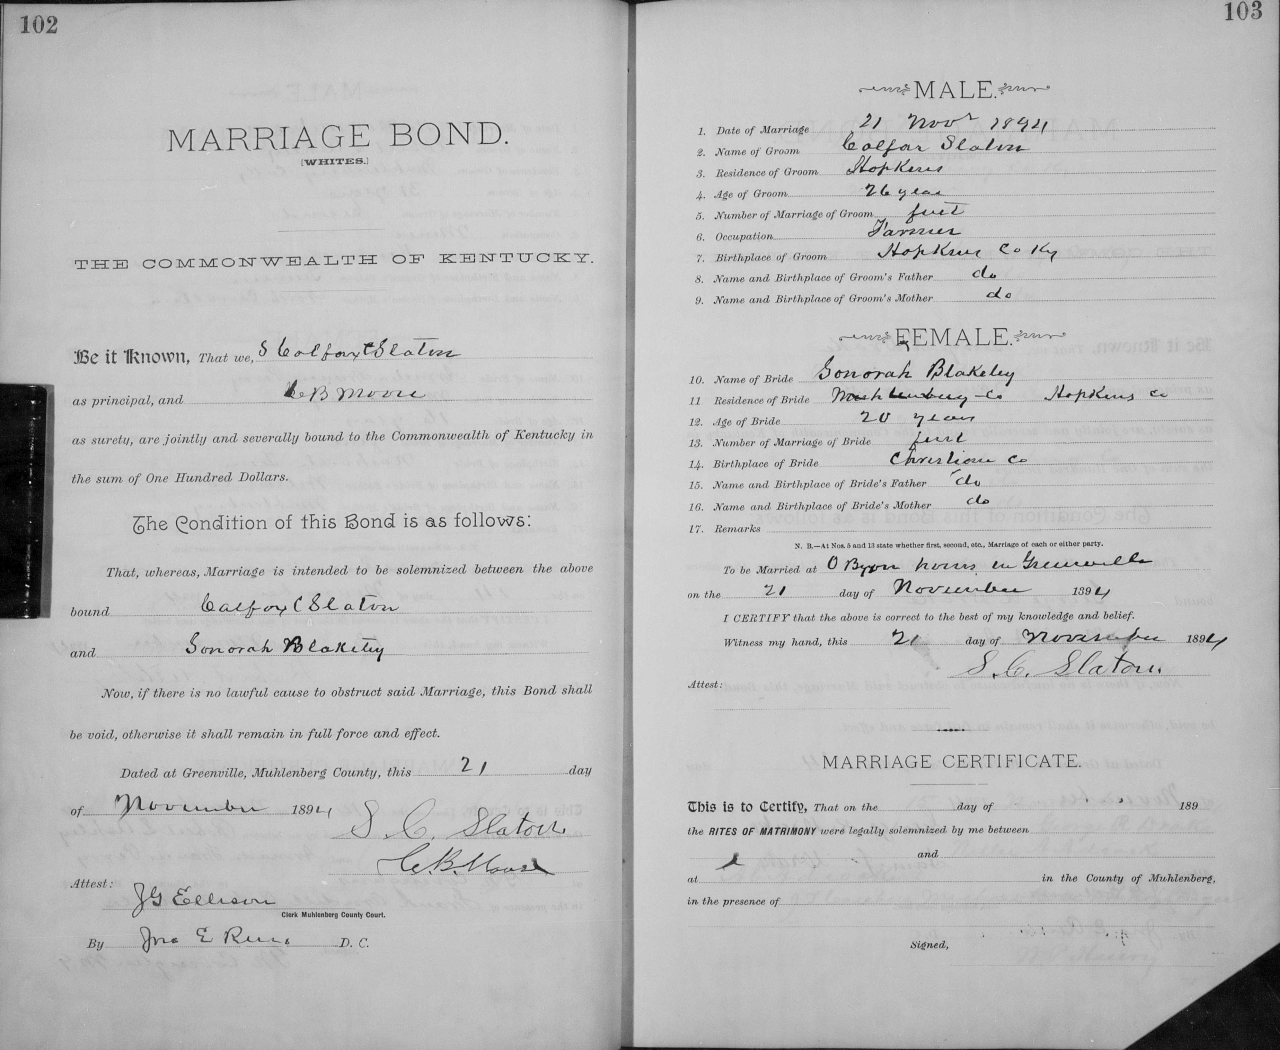 102
MARRIAGE BOND.
[WHITES.]
THE COMMONWEALTH OF KENTUCKY.
Be it Known, That we, S Colfax C Slaton
as principal, and C B Moore
as surety, are jointly and severally bound to the Commonwealth of Kentucky in
the sum of One Hundred Dollars.
The Condition of this Bond is as follows:
That, whereas, Marriage is intended to be solemnized between the above
bound Calfax C Slaton
and Sonorah Blakeley
Now, if there is no lawful cause to obstruct said Marriage, this Bond shall
be void, otherwise it shall remain in full force and effect.
Dated at Greenville, Muhlenberg County, this 21 day
of November 1894
S. C. Slaton
C. B. Moore
Attest:
JG Ellison
Clerk Muhlenberg County Court.
By Jno E D. C.
103
MALE.
1. Date of Marriage 21 Novr 1894
2. Name of Groom Colfax Slaton
3. Residence of Groom Hopkins
4. Age of Groom 26 year
5. Number of Marriage of Groom first
6. Occupation Farmer
7. Birthplace of Groom Hopkins Co Ky
8. Name and Birthplace of Groom's Father do
9. Name and Birthplace of Groom's Mother do
FEMALE.
10. Name of Bride Sonorah Blakeley
11 Residence of Bride Muhlenberg Co Hopkins co
12. Age of Bride 20 years
13. Number of Marriage of Bride first
14. Birthplace of Bride Christian Co
15. Name and Birthplace of Bride's Father do
16. Name and Birthplace of Bride's Mother do
17. Remarks
N. B.—At Nos. 5 and 13 state whether first, second, etc., Marriage of each or either party.
To be Married at O Bryan in Greenville
on the 21 day of November 1894
I CERTIFY that the above is correct to the best of my knowledge and belief.
Witness my hand, this 21 day of November 1894
S. C. Slaton.
Attest:
MARRIAGE CERTIFICATE.
This is to Certify, That on the day of 189
the RITES OF MATRIMONY were legally solemnized by me between
and
at in the County of Muhlenberg,
in the presence of
Signed,